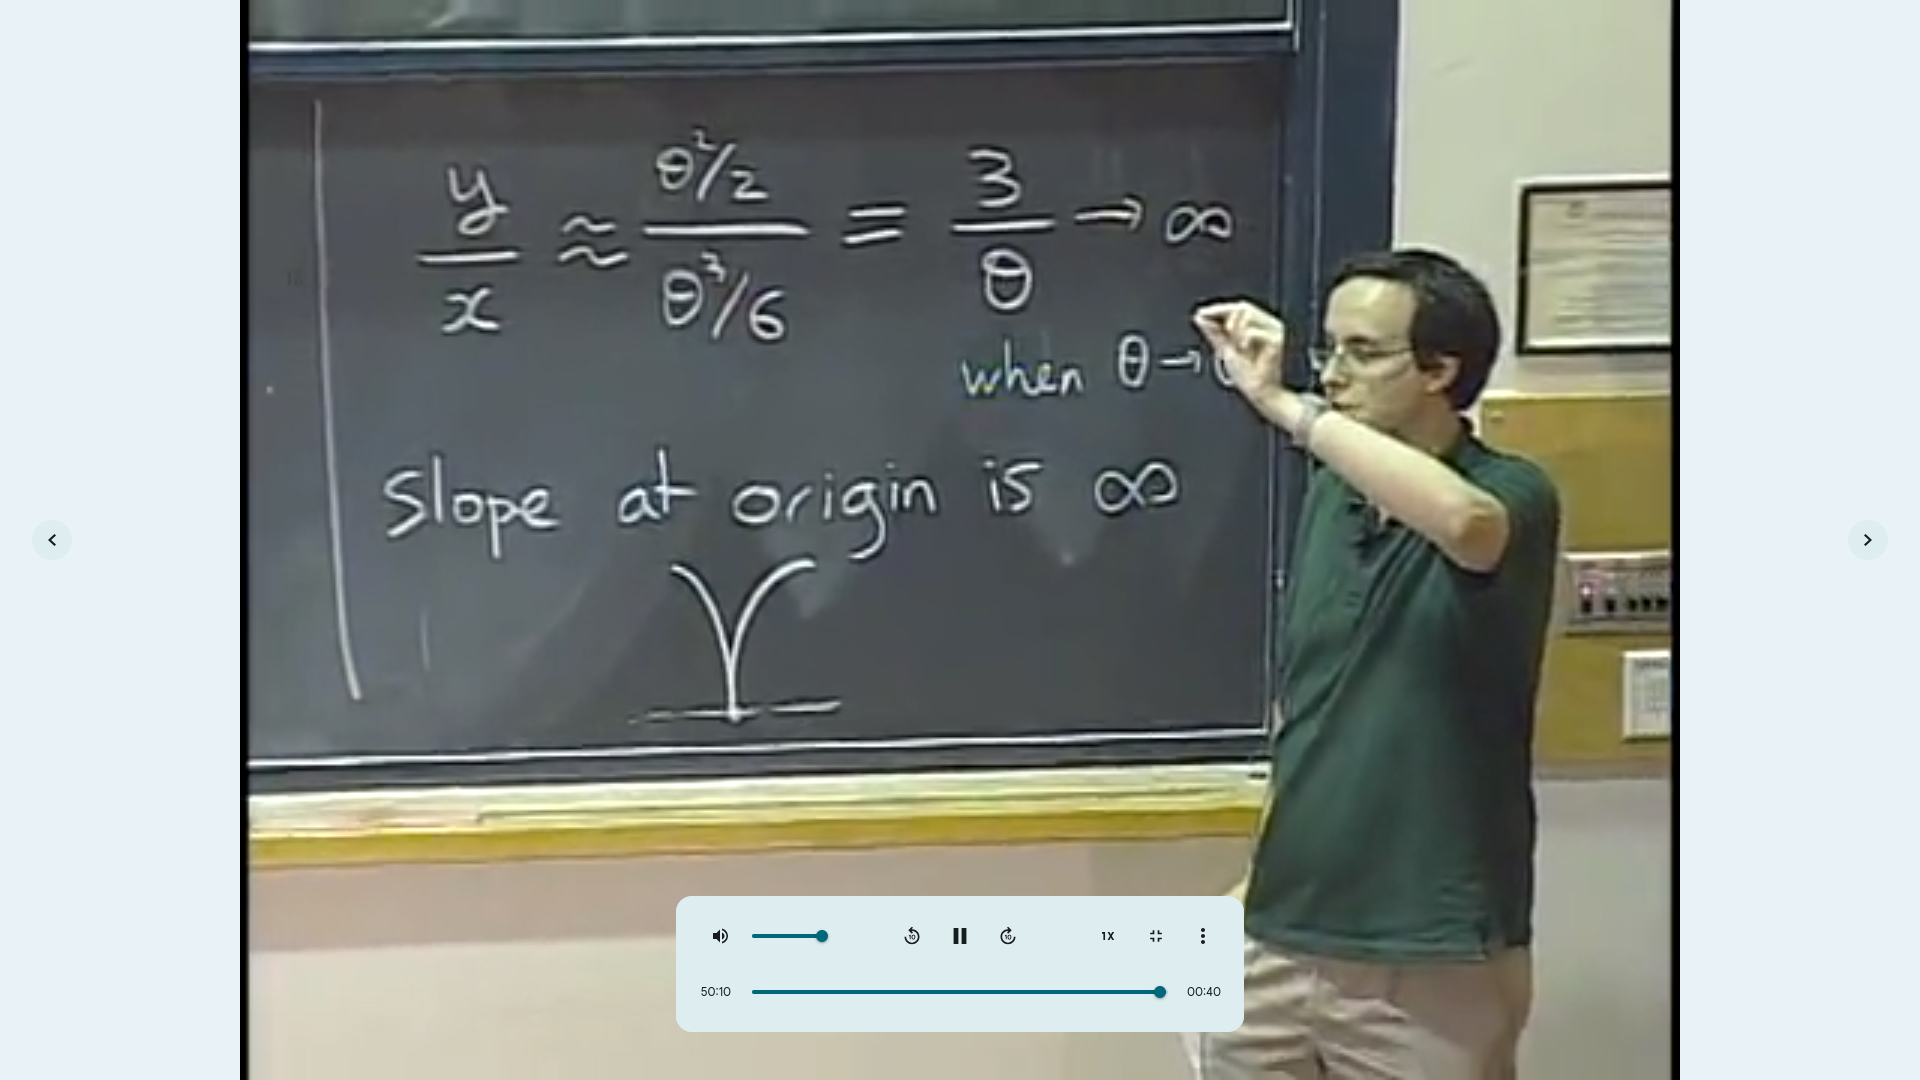 y/x ≈ (θ²/2)/(θ³/6) = 3/θ → ∞
when θ →
Slope at origin is ∞
10
10
1X
50:10
00:40